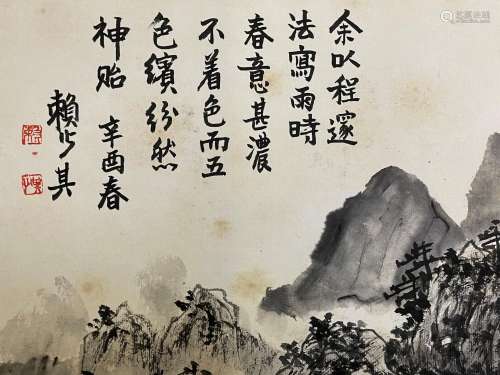 余以程邃
法寫雨時
春意甚濃
不着色而五
色繽紛然
神貽 辛酉春
賴少其